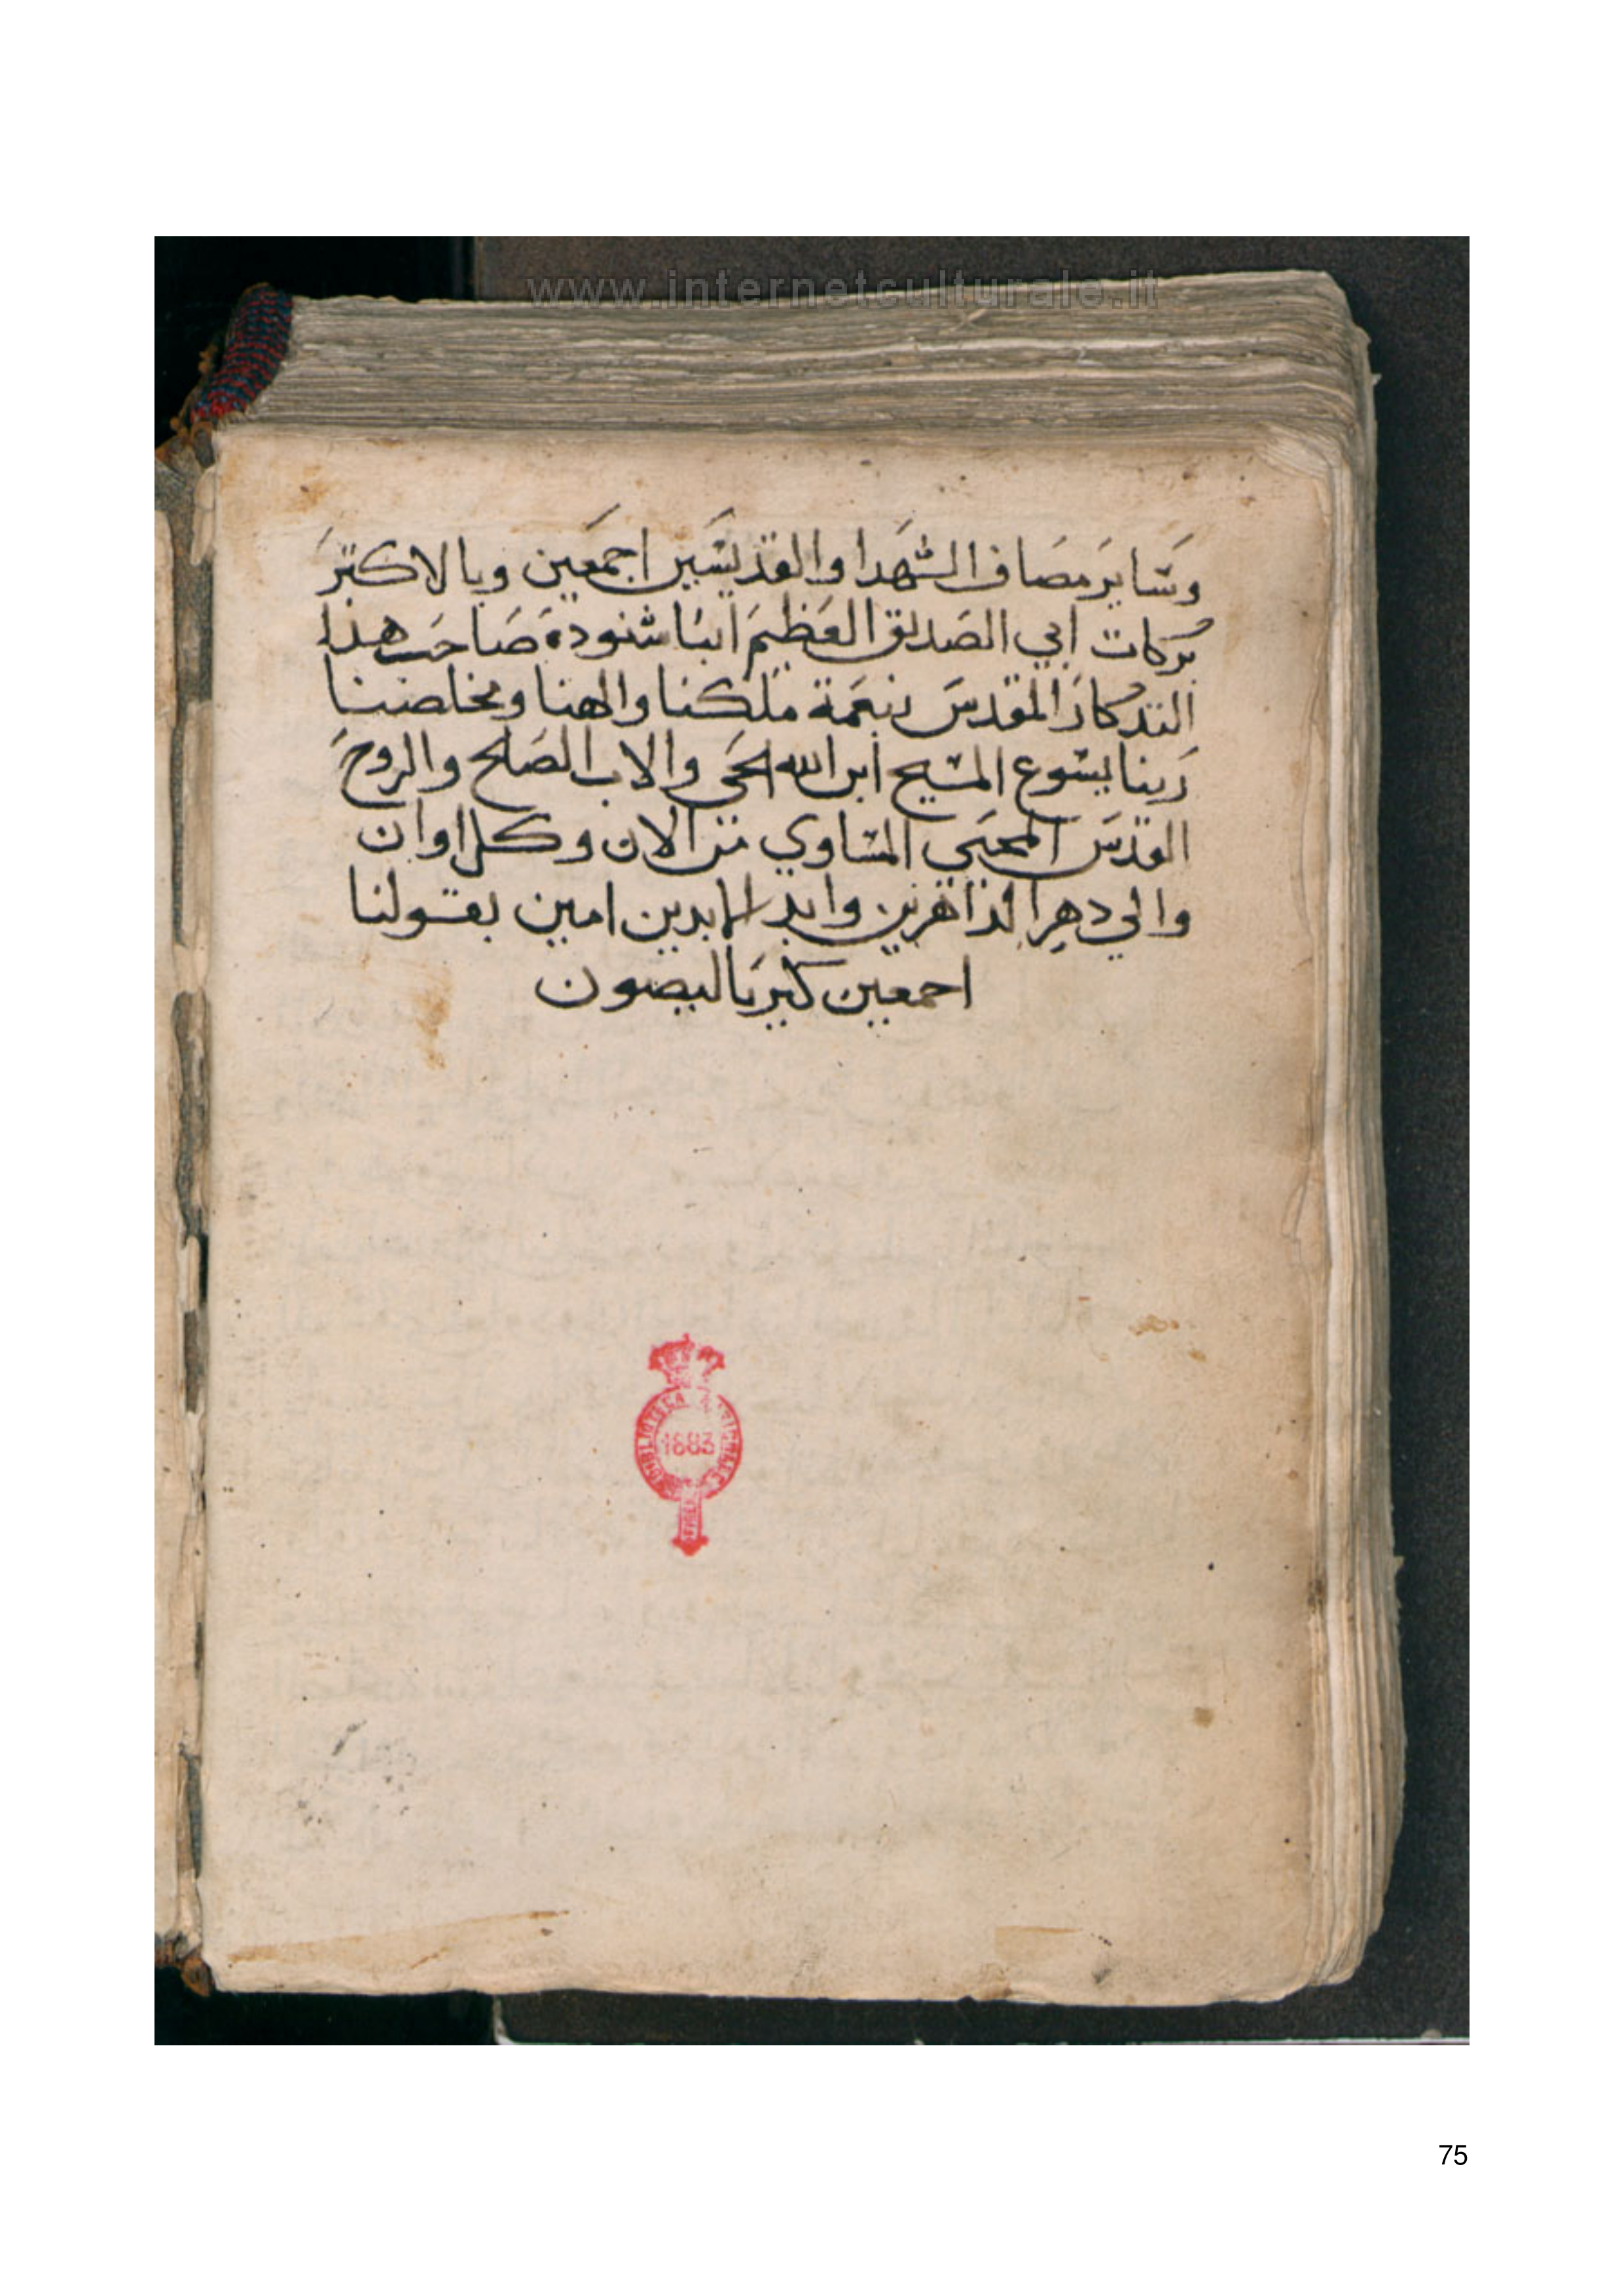 www.internetculturale.it
وسَايرَ مصَاف الشهَدا والقديسَين اجمعَين وبالاكترَ
بركات ابي الصَديق العَظيمَ انبا شنودة صَاحب هدا
التدكارَ المقدسَ بنعَمة ملكنا والاهنا ومخلصنا
رَبنا يسوع المسيح ابن الله الحَي والاب الصَالح والروحَ
القدسَ المحيَي المساوي من الان وكل اوان
والي دهر الداهرين وابد الابدين امين بقولنا
اجمعين كيريَاليصون
BIBLIOTECA NAZIONALE
1883
75